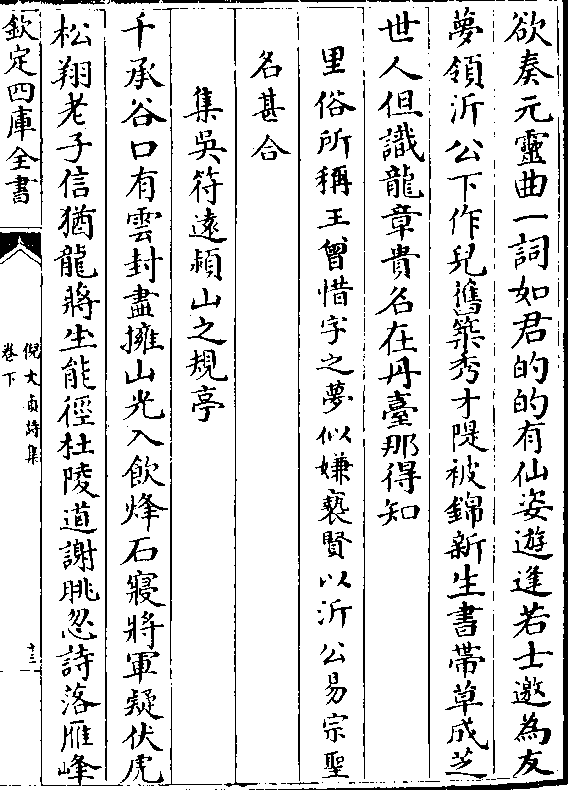 欲奏元靈曲一詞如君的的有仙姿遊逢若士邀為友
夢領沂公下作兒舊築秀才隄被錦新生書帶草成芝
世人但識龍章貴名在丹臺那得知
里俗所稱王曾惜字之夢似嫌褻賢以沂公易宗聖
名甚合
集吳符遠潁山之規亭
千承谷口有雲封盡擁山光入飲烽石寢將軍疑伏虎
松翔老子信猶龍將坐能徑杜陵道謝眺忽詩落雁峰
欽定四庫全書
倪文貞詩集
卷下
十三